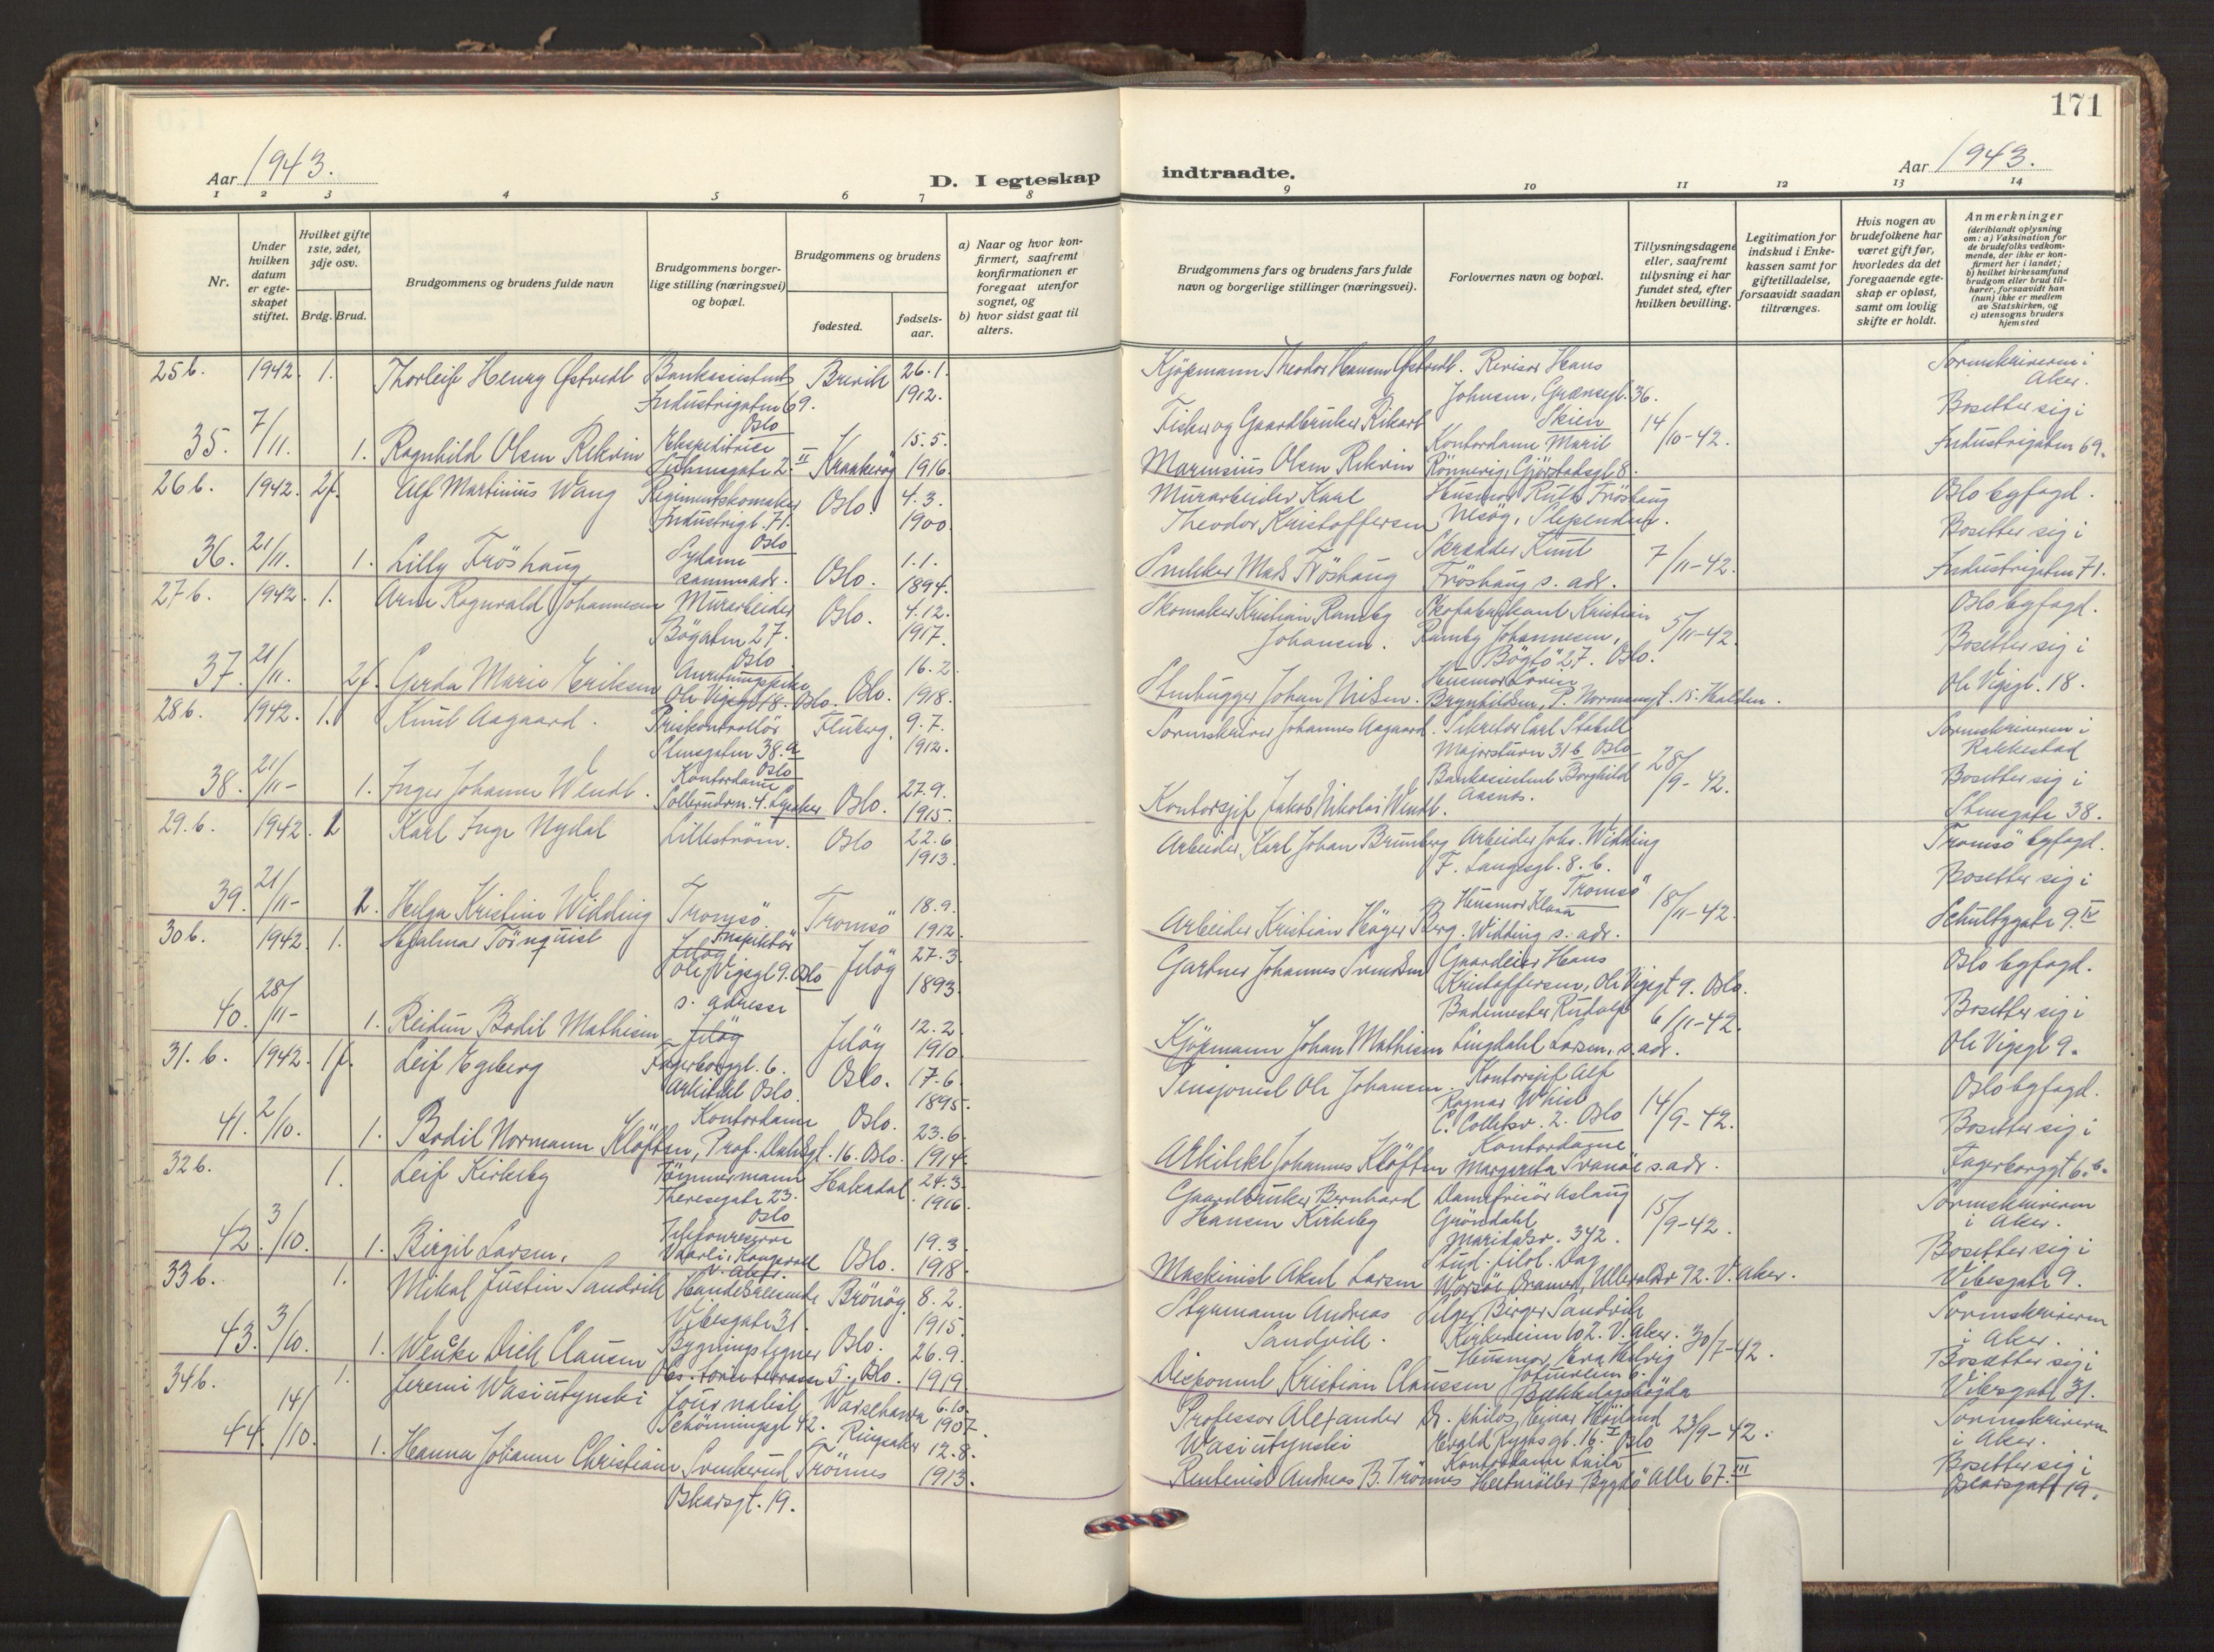 171
Aar 1943.
D. I egteskap
indtraadte.
Aar 1943.
1 2 3 4 5 6 7 8 9 10 11 12 13 14
Nr.
Under hvilken datum er egteskapet stiftet.
Hvilket gifte 1ste, 2det, 3dje osv.
Brdg. Brud.
Brudgommens og brudens fulde navn
Brudgommens borgerlige stilling (næringsvei) og bopæl.
Brudgommens og brudens
fødested.
fødselsaar.
a) Naar og hvor konfirmert, saafremt konfirmationen er foregaat utenfor sognet, og
b) hvor sidst gaat til alters.
Brudgommens fars og brudens fars fulde navn og borgerlige stillinger (næringsvei).
Forlovernes navn og bopæl.
Tillysningsdagene eller, saafremt tillysning ei har fundet sted, efter hvilken bevilling.
Legitimation for indskud i Enkekassen samt for giftetilladelse, forsaavidt saadan tiltrænges.
Hvis nogen av brudefolkene har været gift før, hvorledes da det foregaaende egteskap er opløst, samt om lovlig skifte er holdt.
Anmerkninger (deriblandt oplysning om: a) Vaksination for de brudefolks vedkommende, der ikke er konfirmert her i landet; b) hvilket kirkesamfund brudgom eller brud tilhører, forsaavidt han (hun) ikke er medlem av Statskirken, og c) utensogns bruders hjemsted
25 b. 1942. 1. Thorleif Henry Østvedt Bankassistent Brevik 26.1. 1912.
Industrigaten 69. Oslo
Kjøpmann Theodor Hansen Østvedt. Revisor Hans Johnsen, Grænsegt. 36. Skien
Sorenskriveren i Aker.
35. 7/11. 1. Ragnhild Olsen Rekvin Ekspeditrice Kraakerøy 15.5. 1916.
Fisker og Gaardbruker Rikart Marensius Olsen Rekvin
Kontordame Maril Rönnevig, Gjörstadsgt. 8. 14/10-42.
Bosetter sig i Industrigaten 69.
26 b. 1942. 2f. Alf Martinius Wang Regimentskomaker Oslo. 4.3. 1900.
Industrigt. 71. Oslo
Murarbeider Karl Theodor Kristoffersen
Husmor Ruth Fröshaug Nesøy, Slependen.
Oslo byfogd.
36. 21/11. 1. Lilly Fröshaug Sydame samme adr. Oslo. 1.1. 1894.
Snekker Mads Fröshaug Skrædder Knut Fröshaug s. adr. 7/11-42.
Bosetter sig i Industrigaten 71.
27 b. 1942. 1. Arne Ragnvald Johannesen Murarbeider Oslo. 4.12. 1917.
Bögaten 27. Oslo
Skomaker Kristian Ramby Johansen.
Skofabrikant Kristian Ramby Johannesen, 27. Oslo. 5/11-42.
Oslo byfogd.
37. 21/11. 2f. Gerda Marie Eriksen Ole Vigsgt 18. Oslo. Oslo. 16.2. 1918.
Stenhugger Johan Nilsen. Husmor Brynhildsen, P. Normansgt. 15. Halden.
Bosetter sig i Ole Vigsgt. 18.
28 b. 1942. 1. Knut Aagaard. Priskontrollör Fluberg. 9.7. 1912.
Stensgaten 38.a Oslo
Sorenskriver Johannes Aagaard. Sekretær Carl Stabell Majorstuvn 31 b Oslo
Sorenskriveren i Rakkestad
38. 21/11- 1. Inger Johanne Wendt. Kontordame Sollerudvn. 4. Lysaker Oslo. 27.9. 1915.
Kontorsjef Jakob Nikolai Wendt. Bankassistent Borghild Aasnes. 28/9-42.
Bosetter sig i Stensgate 38.
29. b. 1942. 2 Karl Inge Nydal Lilleström. Oslo 22.6 1913.
Arbeider, Karl Johan Brunberg Arbeider Johs. Widding F. Langesgt. 8. b. Tromsö
Tromsö byfogd.
39. 21/11- 2. Helga Kristine Widding Tromsö Tromsö 18.9. 1912.
Arbeider Kristian Häger Berg. Husmor Klara Widding s. adr. 18/11-42.
Bosetter sig i Schultzgate 9. IV
30 b. 1942. 1. Hjalmar Törnquist Inspektör Jeløy Ole Vigsgt 9. Oslo Jeløy 27.3 1893.
Gartner Johannes Svendsen Gaardeier Hans Kristoffersen, Ole Vigsgt 9. Oslo.
Oslo byfogd.
40. 28/11- 1. Reidun Bodil Mathisen s. adresse Jeløy Jeløy 12.2. 1910
Kjøpmann Johan Mathisen Bademester Rudolf Lingdahl Larsen, s. adr. 6/11-42.
Bosetter sig i Ole Vigsgt 9.
31. b. 1942. 1f. Leif Egeberg Fagerborggt. 6. Arkitekt Oslo. Oslo. 17.6. 1895.
Pensjonist Ole Johansen. Kontorsjef Alf Ragnar Whist C. Colletsv. 2. Oslo
Oslo byfogd.
41. 2/10. 1. Bodil Normann Klöften, Kontordame Prof. Dahlsgt. 16. Oslo. Oslo. 23.6. 1914.
Arkitekt Johannes Klöften Kontordame Margreta Svanøe s. adr. 14/9-42.
Bosetter sig i Fagerborggt 6. b.
32 b. 1. Leif Kirkeby Tömmermann Theresegate 23. Oslo Hakadal. 24.3. 1916.
Gaardbruker Bernhard Hansen Kirkeby Damefrisör Aslaug Gröndahl Maridalsv. 342. 15/9-42.
Sorenskriveren i Aker.
42. 3/10. 1. Birgit Larsen, V. Aker. Oslo. 19.3. 1918.
Maskinist Aksel Larsen Stud. filol. Dag 92. V. Aker.
Bosetter sig i Vibesgate 9.
33 b. 1. Mikal Justin Sandvik Handelsreisende Vibesgate 31. Brönöy. 8.2. 1915.
Styrmann Andreas Sandvik. Selger Birger Sandvik Kirkeveien 102. V. Aker.
Sorenskriveren i Aker.
43. 3/10. 1. Wencke Dick Clausen Bygningstegner 5. Oslo. Oslo. 26.9. 1919.
Disponent Kristian Claussen Husmor Eva Hedvig 30/7-42.
Bosætter sig i Vibesgate 31.
34 b. 1. Jeremi Wasiutynski Journalist Schönningsgt 42. Warschawa 6.10. 1907.
Professor Alexander Wasiutynski Dr. philos. Einar Høiland Evald Ryghsgt. 16. I Oslo 23/9-42.
Sorenskriveren i Aker.
44. 14/10. 1. Hanna Johanne Christiane Svenkerud Trönnes Oskarsgt. 19. Ringsaker 12.8. 1913.
Rentenist Andreas B. Trönnes Kontordame Laila Heltmöller Bygdö Alle 67. III
Bosetter sig i Oscarsgatt 19.